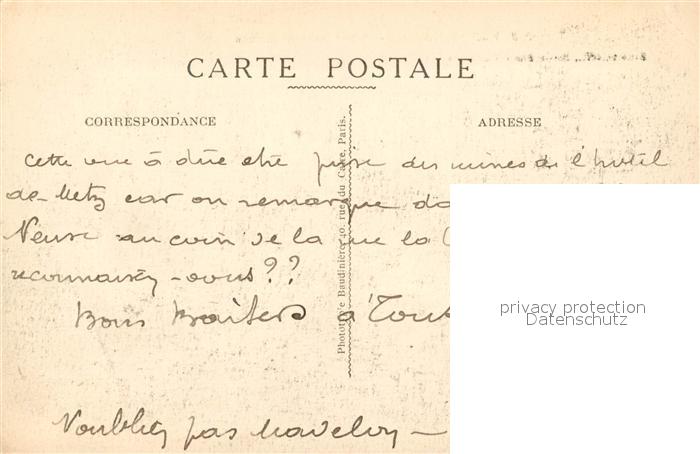 CARTE POSTALE
CORRESPONDANCE
ADRESSE
Cette vue à dûe etre prise des ruines de l'hotel
de Metz car on remarque
Meuse au coin de la rue la
reconnaissez-vous??
Bons Baisers à Tout
N'oubliez pas
Phototypie Baudinière, 40, rue du Caire, Paris.
privacy protection
Datenschutz